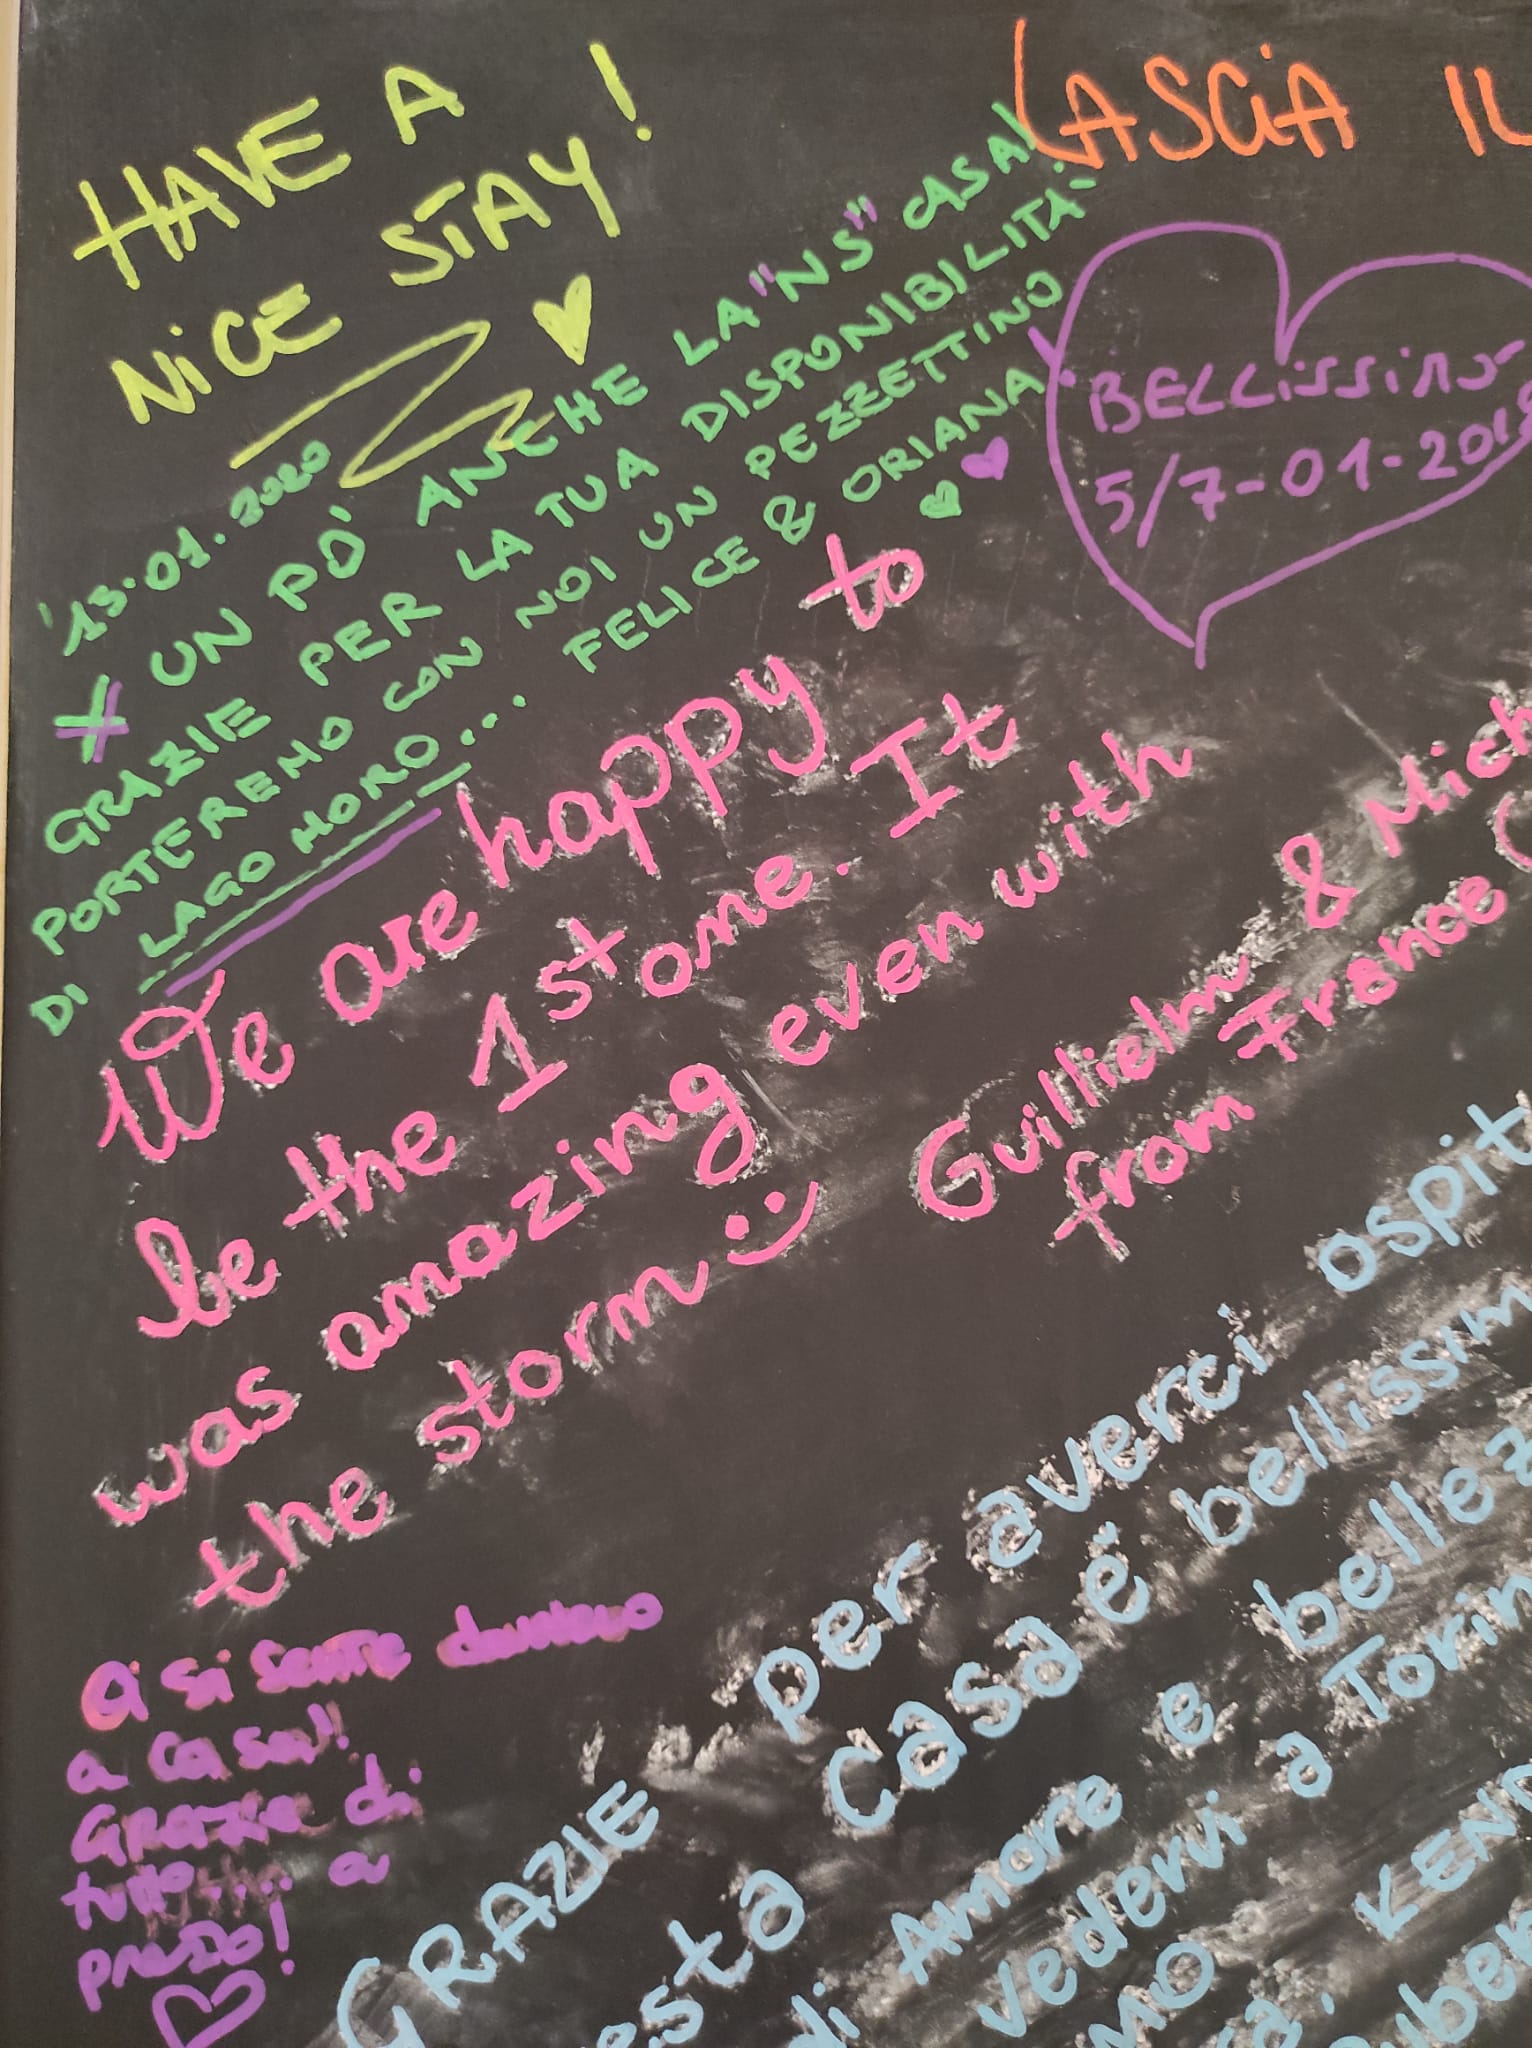 HAVE A
NICE STAY!
LASCIA IL
'13.01.2020
X UN PO' ANCHE LA "NS" CASA!
GRAZIE PER LA TUA DISPONIBILITA'
PORTEREMO CON NOI UN PEZZETTINO
DI LAGO MORO... FELICE & ORIANA
BELLISSIMO
5/7-01-2018
We are happy to
be the 1st one. It
was amazing even with
the storm
Guillielm & Mich
from France (
Ci si sente davvero
a casa!!
Grazie di
tutto.... a
presto!
GRAZIE per averci ospit
esta casa è bellissim
di Amore e bellez
vedervi a Torin
MO
KENN